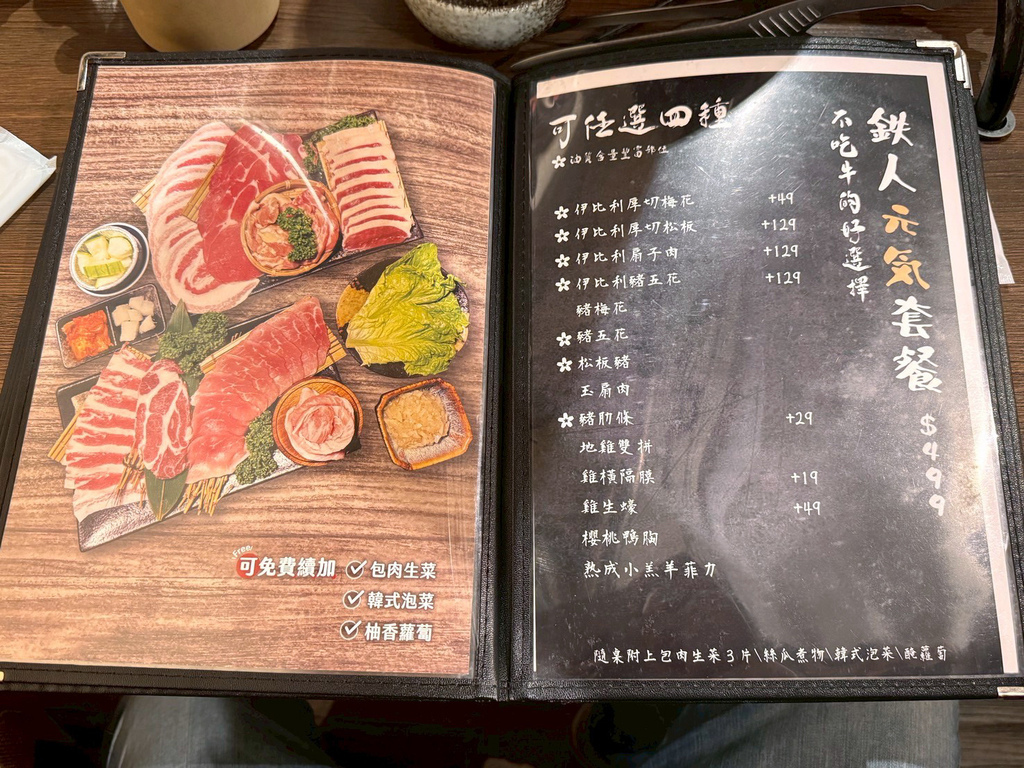 Free
可免費續加
包肉生菜
韓式泡菜
柚香蘿蔔
鉄人元気套餐 $499
不吃牛的好選擇
可任選四種
油質含量豐富部位
伊比利厚切梅花 +49
伊比利厚切松板 +129
伊比利扇子肉 +129
伊比利豬五花 +129
豬梅花
豬五花
松板豬
玉扇肉
豬肋條 +29
地雞雙拼
雞橫隔膜 +19
雞生蠔 +49
櫻桃鴨胸
熟成小羔羊菲力
隨桌附上包肉生菜3片\絲瓜煮物\韓式泡菜\醃蘿蔔